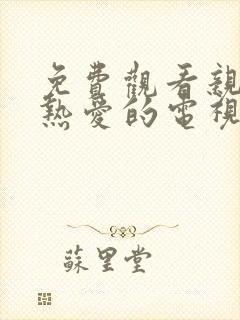 免費觀看親
熱愛的電視
蘇里堂